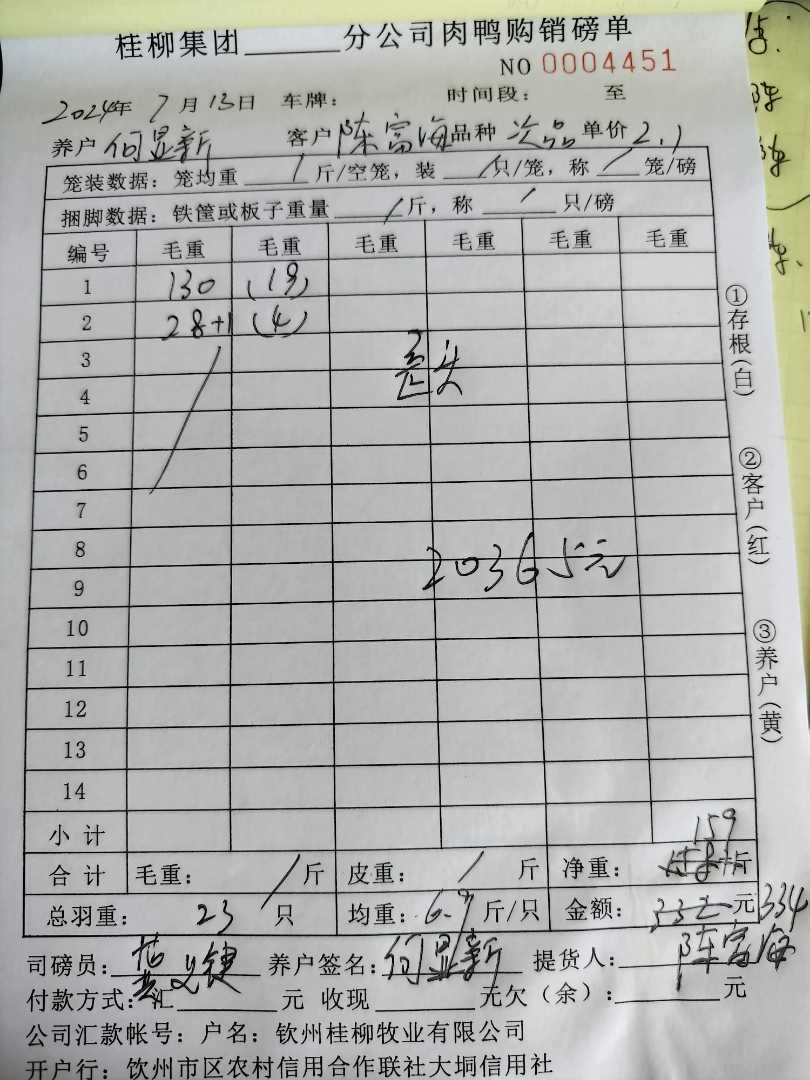 桂柳集团______分公司肉鸭购销磅单
NO 0004451
2024年 7月13日 车牌: 时间段: 至
养户 何显新 客户 陈富海 品种 次品 单价 2.1
笼装数据: 笼均重 / 斤/空笼, 装 / 只/笼, 称 / 笼/磅
捆脚数据: 铁筐或板子重量 / 斤, 称 / 只/磅
编号 毛重 毛重 毛重 毛重 毛重 毛重
1 130 (19)
2 28+1 (4)
3 歪头
4
5
6
7
8 20365元
9
10
11
12
13
14
小计 159
合计 毛重: / 斤 皮重: / 斤 净重: 斤
总羽重: 23 只 均重: 6.9 斤/只 金额: 332 元 334
司磅员: 养户签名: 何显新 提货人: 陈富海
付款方式: 汇______元 收现______元欠(余): / 元
公司汇款帐号: 户名: 钦州桂柳牧业有限公司
开户行: 钦州市区农村信用合作联社大垌信用社
①存根(白)
②客户(红)
③养户(黄)